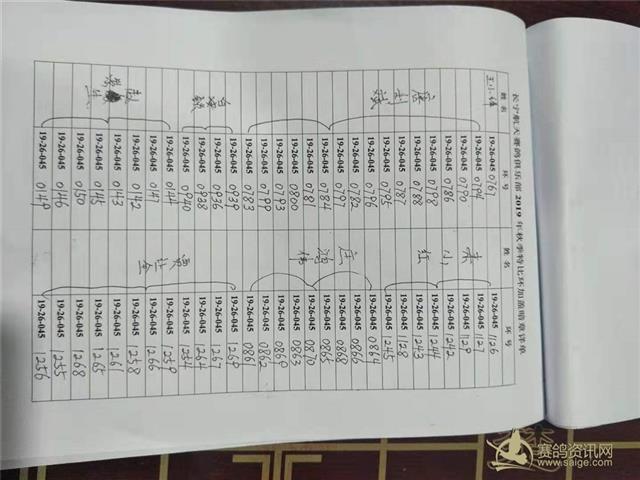 长宁航天赛鸽俱乐部 2019 年秋季特比环加盖暗章详单
姓名 环号 姓名 环号
19-26-045 0761 19-26-045 1126
19-26-045 0794 19-26-045 1127
19-26-045 0790 19-26-045 1129
19-26-045 0786 19-26-045 1242
19-26-045 0778 小红 19-26-045 1244
19-26-045 0788 19-26-045 1243
19-26-045 0787 19-26-045 1128
19-26-045 0795 19-26-045 1245
19-26-045 0796 19-26-045 0864
19-26-045 0782 19-26-045 0866
19-26-045 0797 19-26-045 0868
19-26-045 0784 19-26-045 0865
19-26-045 0781 19-26-045 0870
19-26-045 0800 19-26-045 0863
19-26-045 0793 19-26-045 0869
19-26-045 0799 19-26-045 0862
19-26-045 0783 19-26-045 0861
19-26-045 0939 19-26-045 1269
19-26-045 0936 19-26-045 1267
19-26-045 0938 19-26-045 1264
19-26-045 0940 19-26-045 1254
19-26-045 0144 19-26-045 1259
19-26-045 0141 19-26-045 1266
19-26-045 0142 19-26-045 1258
19-26-045 0143 19-26-045 1261
19-26-045 0145 19-26-045 1265
19-26-045 0150 19-26-045 1268
19-26-045 0146 19-26-045 1255
19-26-045 0149 19-26-045 1256
赛鸽资讯网
www.saige.com